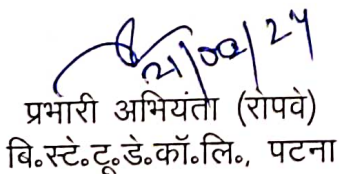 21/02/24
प्रभारी अभियंता (रोपवे)
बि॰स्टे॰टू॰डे॰कॉ॰लि॰, पटना